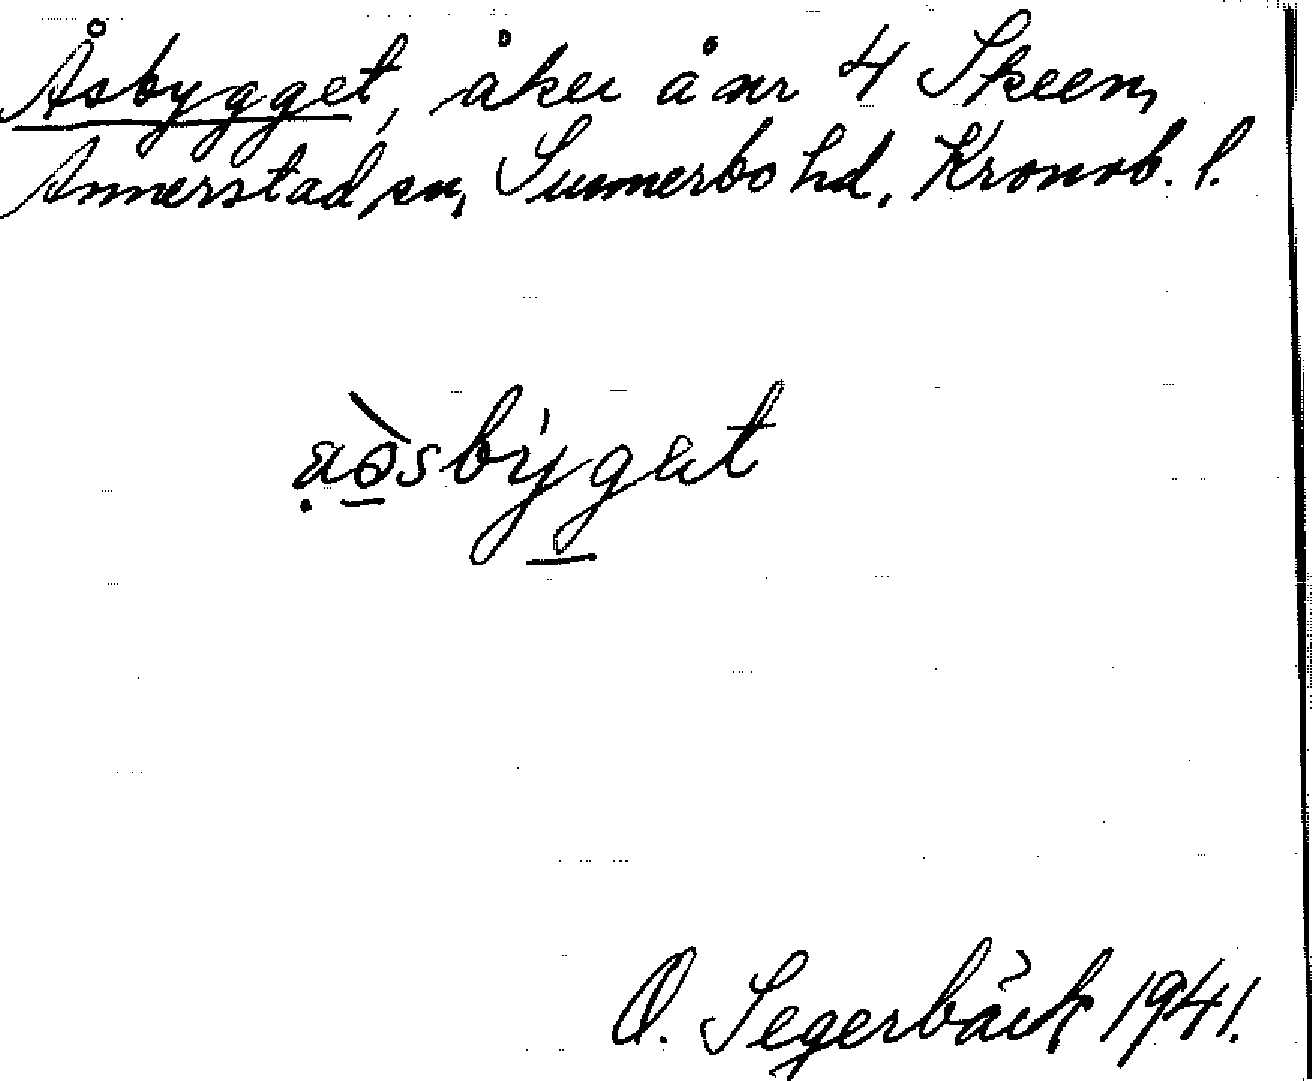 Åsbygget, åker å nr 4 Skeen,
Annerstad sn, Sunnerbo hd. Kronob. l.
ạə̀sbýget
O. Segerbäck 1941.